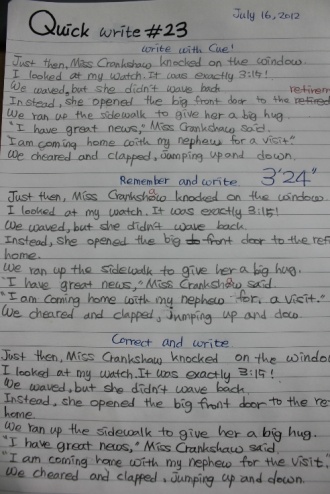 July 16, 2012
Quick write #23
write with Cue!
Just then, Miss Crankshaw knocked on the window.
I looked at my watch. It was exactly 3:15!
We waved, but she didn't wave back
Instead, she opened the big front door to the retired
We ran up the sidewalk to give her a big hug.
"I have great news," Miss Crankshaw said.
I am coming home with my nephew for a visit."
We cheered and clapped, Jumping up and down.
Remember and write 3'24"
Just then, Miss Crankshaw knocked on the window
I looked at my watch. It was exactly 3:15!
We waved, but she didn't wave back
Instead, she opened the big front door to the
home.
We ran up the sidewalk to give her a big hug.
"I have great news," Miss Crankshaw said
"I am coming home with my nephew for a visit."
We cheared and clapped, Jumping up and dow.
Correct and write
Just then, Miss Crankshaw knocked on the
I looked at my watch. It was exactly 3:15!
We waved, but she didn't wave back.
Instead, she opened the big front door to the
home.
We ran up the sidewalk to give her a big hug.
"I have great news," Miss Crankshaw said,
"I am coming home with my nephew for the visit."
We cheered and clapped, Jumping up and down.